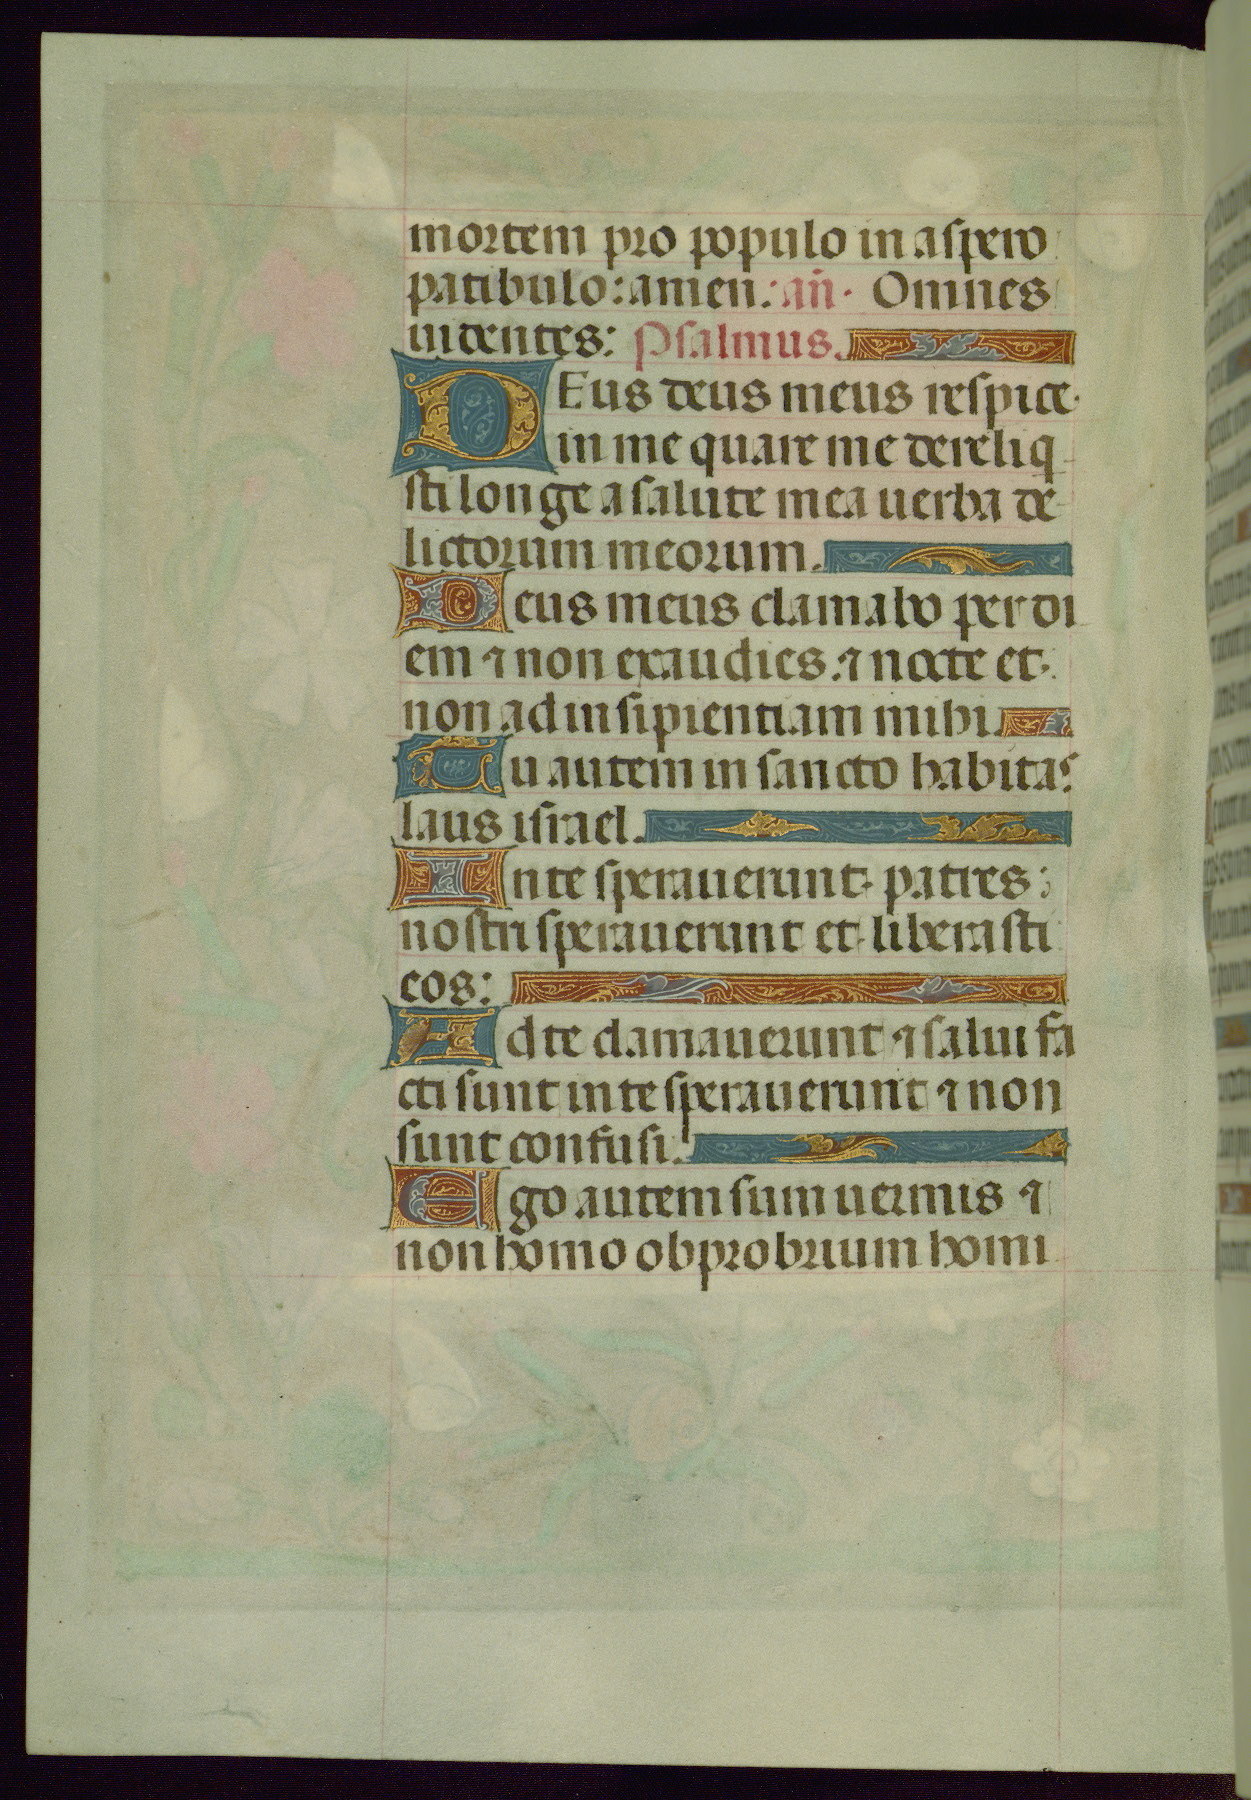 mortem pro populo in aspero
patibulo: amen: an̄. Omnes
uidentes: Psalmus.
DEus deus meus respice
in me quare me dereliq
sti longe a salute mea uerba de
lictorum meorum.
Deus meus clamabo per di
em ⁊ non exaudies: ⁊ nocte et
non ad insipientiam mihi.
Tu autem in sancto habitas
laus israel.
In te sperauerunt patres:
nostri sperauerunt et liberasti
eos:
Ad te clamauerunt ⁊ salui fa
cti sunt in te sperauerunt ⁊ non
sunt confusi.
Ego autem sum uermis ⁊
non homo obprobrium homi